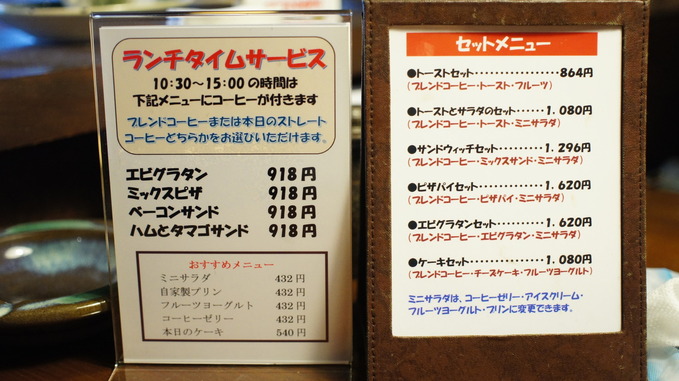 ランチタイムサービス
10:30〜15:00の時間は
下記メニューにコーヒーが付きます
ブレンドコーヒーまたは本日のストレート
コーヒーどちらかをお選びいただけます。
エビグラタン 918円
ミックスピザ 918円
ベーコンサンド 918円
ハムとタマゴサンド 918円
おすすめメニュー
ミニサラダ 432円
自家製プリン 432円
フルーツヨーグルト 432円
コーヒーゼリー 432円
本日のケーキ 540円
セットメニュー
●トーストセット・・・・・・・・・・・・・・・864円
(ブレンドコーヒー・トースト・フルーツ)
●トーストとサラダのセット・・・1.080円
(ブレンドコーヒー・トースト・ミニサラダ)
●サンドウィッチセット・・・・・・・・1.296円
(ブレンドコーヒー・ミックスサンド・ミニサラダ)
●ピザパイセット・・・・・・・・・・・・1.620円
(ブレンドコーヒー・ピザパイ・ミニサラダ)
●エビグラタンセット・・・・・・・・・1.620円
(ブレンドコーヒー・エビグラタン・ミニサラダ)
●ケーキセット・・・・・・・・・・・・・・1.080円
(ブレンドコーヒー・チーズケーキ・フルーツヨーグルト)
ミニサラダは、コーヒーゼリー・アイスクリーム・
フルーツヨーグルト・プリンに変更できます。